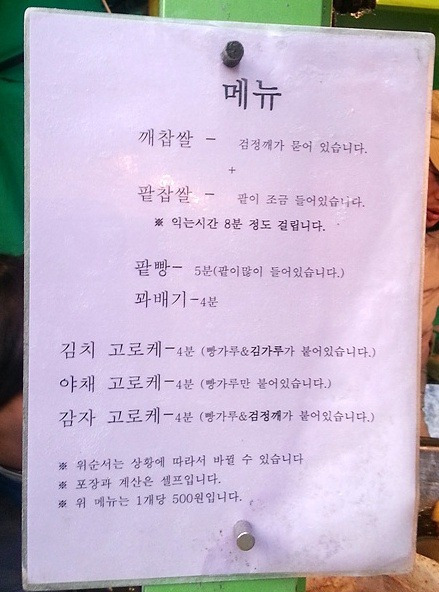 메뉴
깨찹쌀 - 검정깨가 묻어 있습니다.
+
팥찹쌀 - 팥이 조금 들어있습니다.
※ 익는시간 8분 정도 걸립니다.
팥빵- 5분(팥이많이 들어있습니다.)
꽈배기-4분
김치 고로케-4분 (빵가루&김가루가 붙어있습니다.)
야채 고로케-4분 (빵가루만 붙어있습니다.)
감자 고로케-4분 (빵가루&검정깨가 붙어있습니다.)
※ 위순서는 상황에 따라서 바뀔 수 있습니다
※ 포장과 계산은 셀프입니다.
※ 위 메뉴는 1개당 500원입니다.